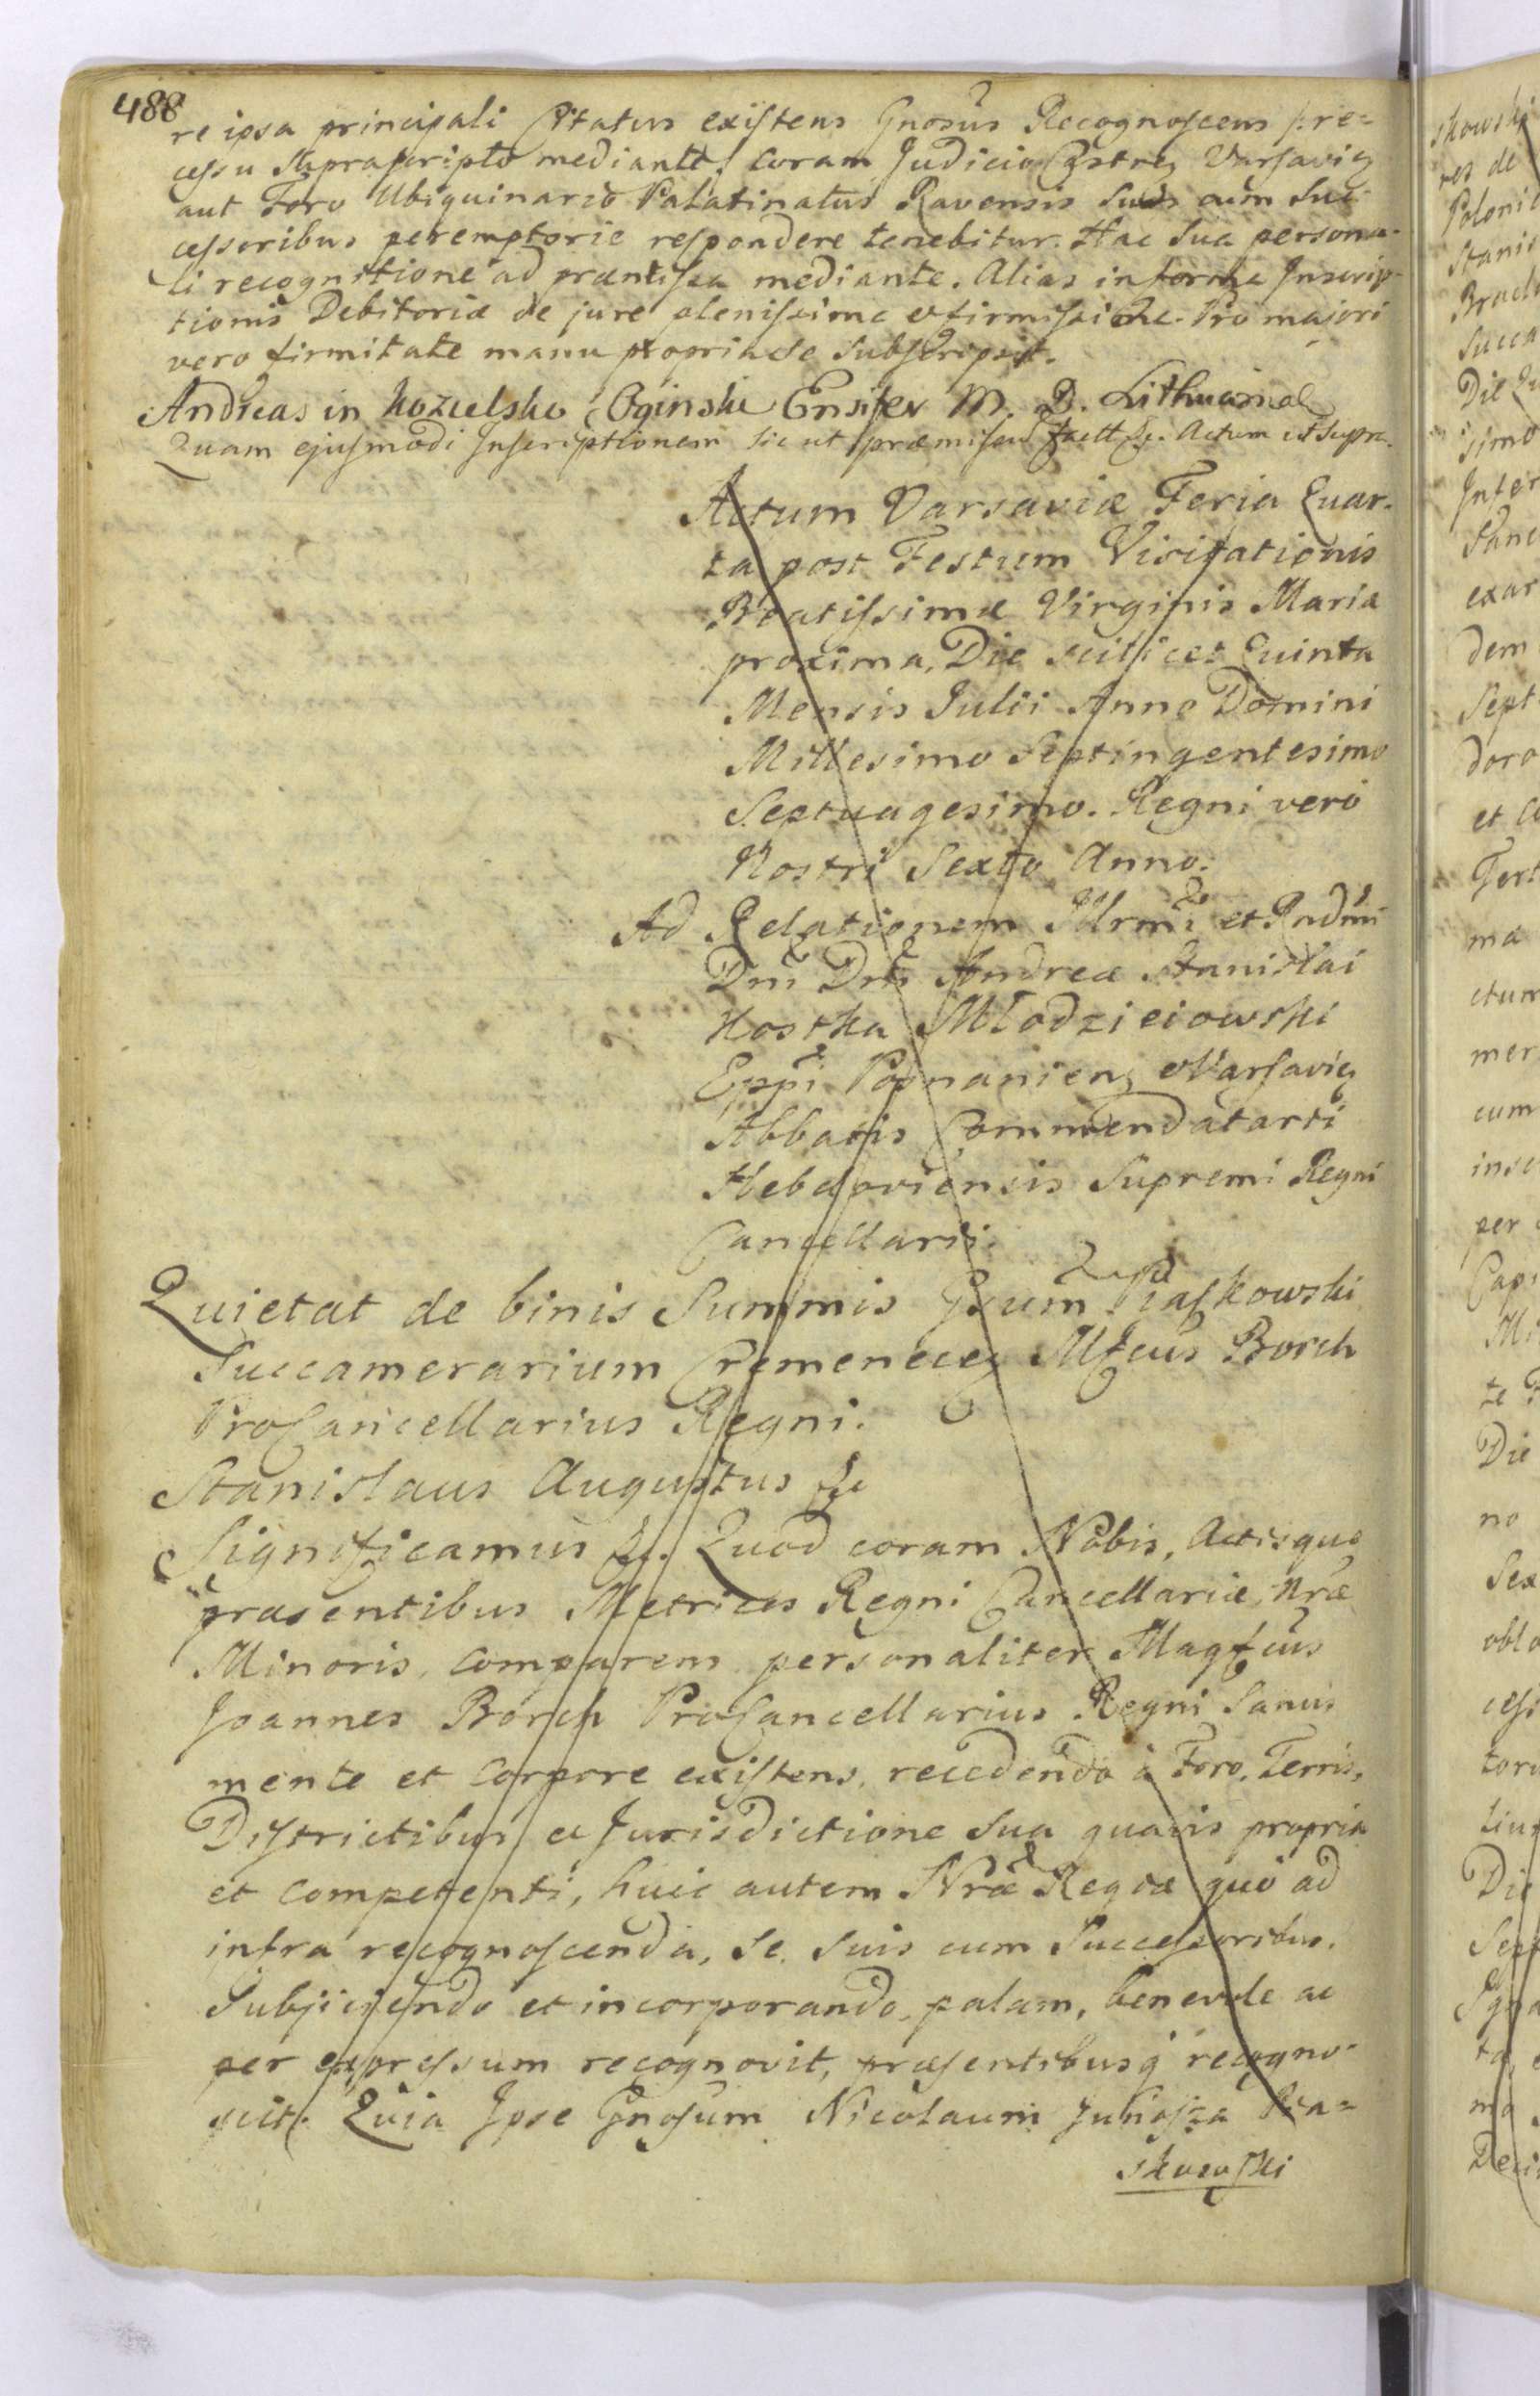 488
re ipsa principali Citatus existens Gnosus Recognoscens pro=
cessu suprascripto mediante. Coram Judicio Castrē Varsavię
aut Foro Ubiquinario Palatinatus Ravensis suis cum Suc
cessoribus peremptorie respondere tenebitur. Hac sua persona-
li recognitione ad præmissa mediante. Alias in forma Inscrip-
tionis Debitoriæ de jure plenissima et firmissima. Pro majori
vero firmitate manu propria se Subscripsit.
Andreas in Kozielsko Oginski Ensifer M. D. Lithuaniae
Quam ejusmodi Inscriptionem sic ut præmissū factt &c. Actum ut supra.
Actum Varsaviæ Feria Quar-
ta post Festum Visitationis
Beatissimæ Virginis Mariæ
proxima, Die scilicet Quinta
Mensis Julii Anno Domini
Millesimo Septingentesimo
Septuagesimo. Regni verò
Nostri Sexto Anno.
Ad Relationem Illrmi et Rndmi
Dni Dni Andreæ Stanislai
Kostka Młodzieiowski
Eppi Posnanien, et Varsavię
Abbatis Commendatarii
Hebdoviensis Supremi Regni
Cancellarii.
Quietat de binis Summis Gsum Piaskowski
Succamerarium Cremenecen Mfcus Borch
ProCancellarius Regni.
Stanislaus Augustus &c
Significamus &c. Quod coram Nobis, Actisque
præsentibus Metrices Regni Cancellariæ Nræ
Minoris, comparens personaliter Magfcus
Joannes Borch ProCancellarius Regni Sanus
mente et corpore existens, recedendo à Foro, Terris,
Districtibus et Jurisdictione sua quavis propria
et competenti, huic autem Nræ Regiæ quò ad
infra recognoscenda, se suis cum Successoribus.
Subjiciendo et incorporando, palam, benevole ac
per expressum recognovit, præsentibusq́ recogno-
scit. Quia Ipse Gnosum Nicolaum Junosza Pia=
skowski
skowski
res de
Stanis
Succa
simo
exar
dem
Sept
et
ma
ctum
mer
cum
per
Die
no